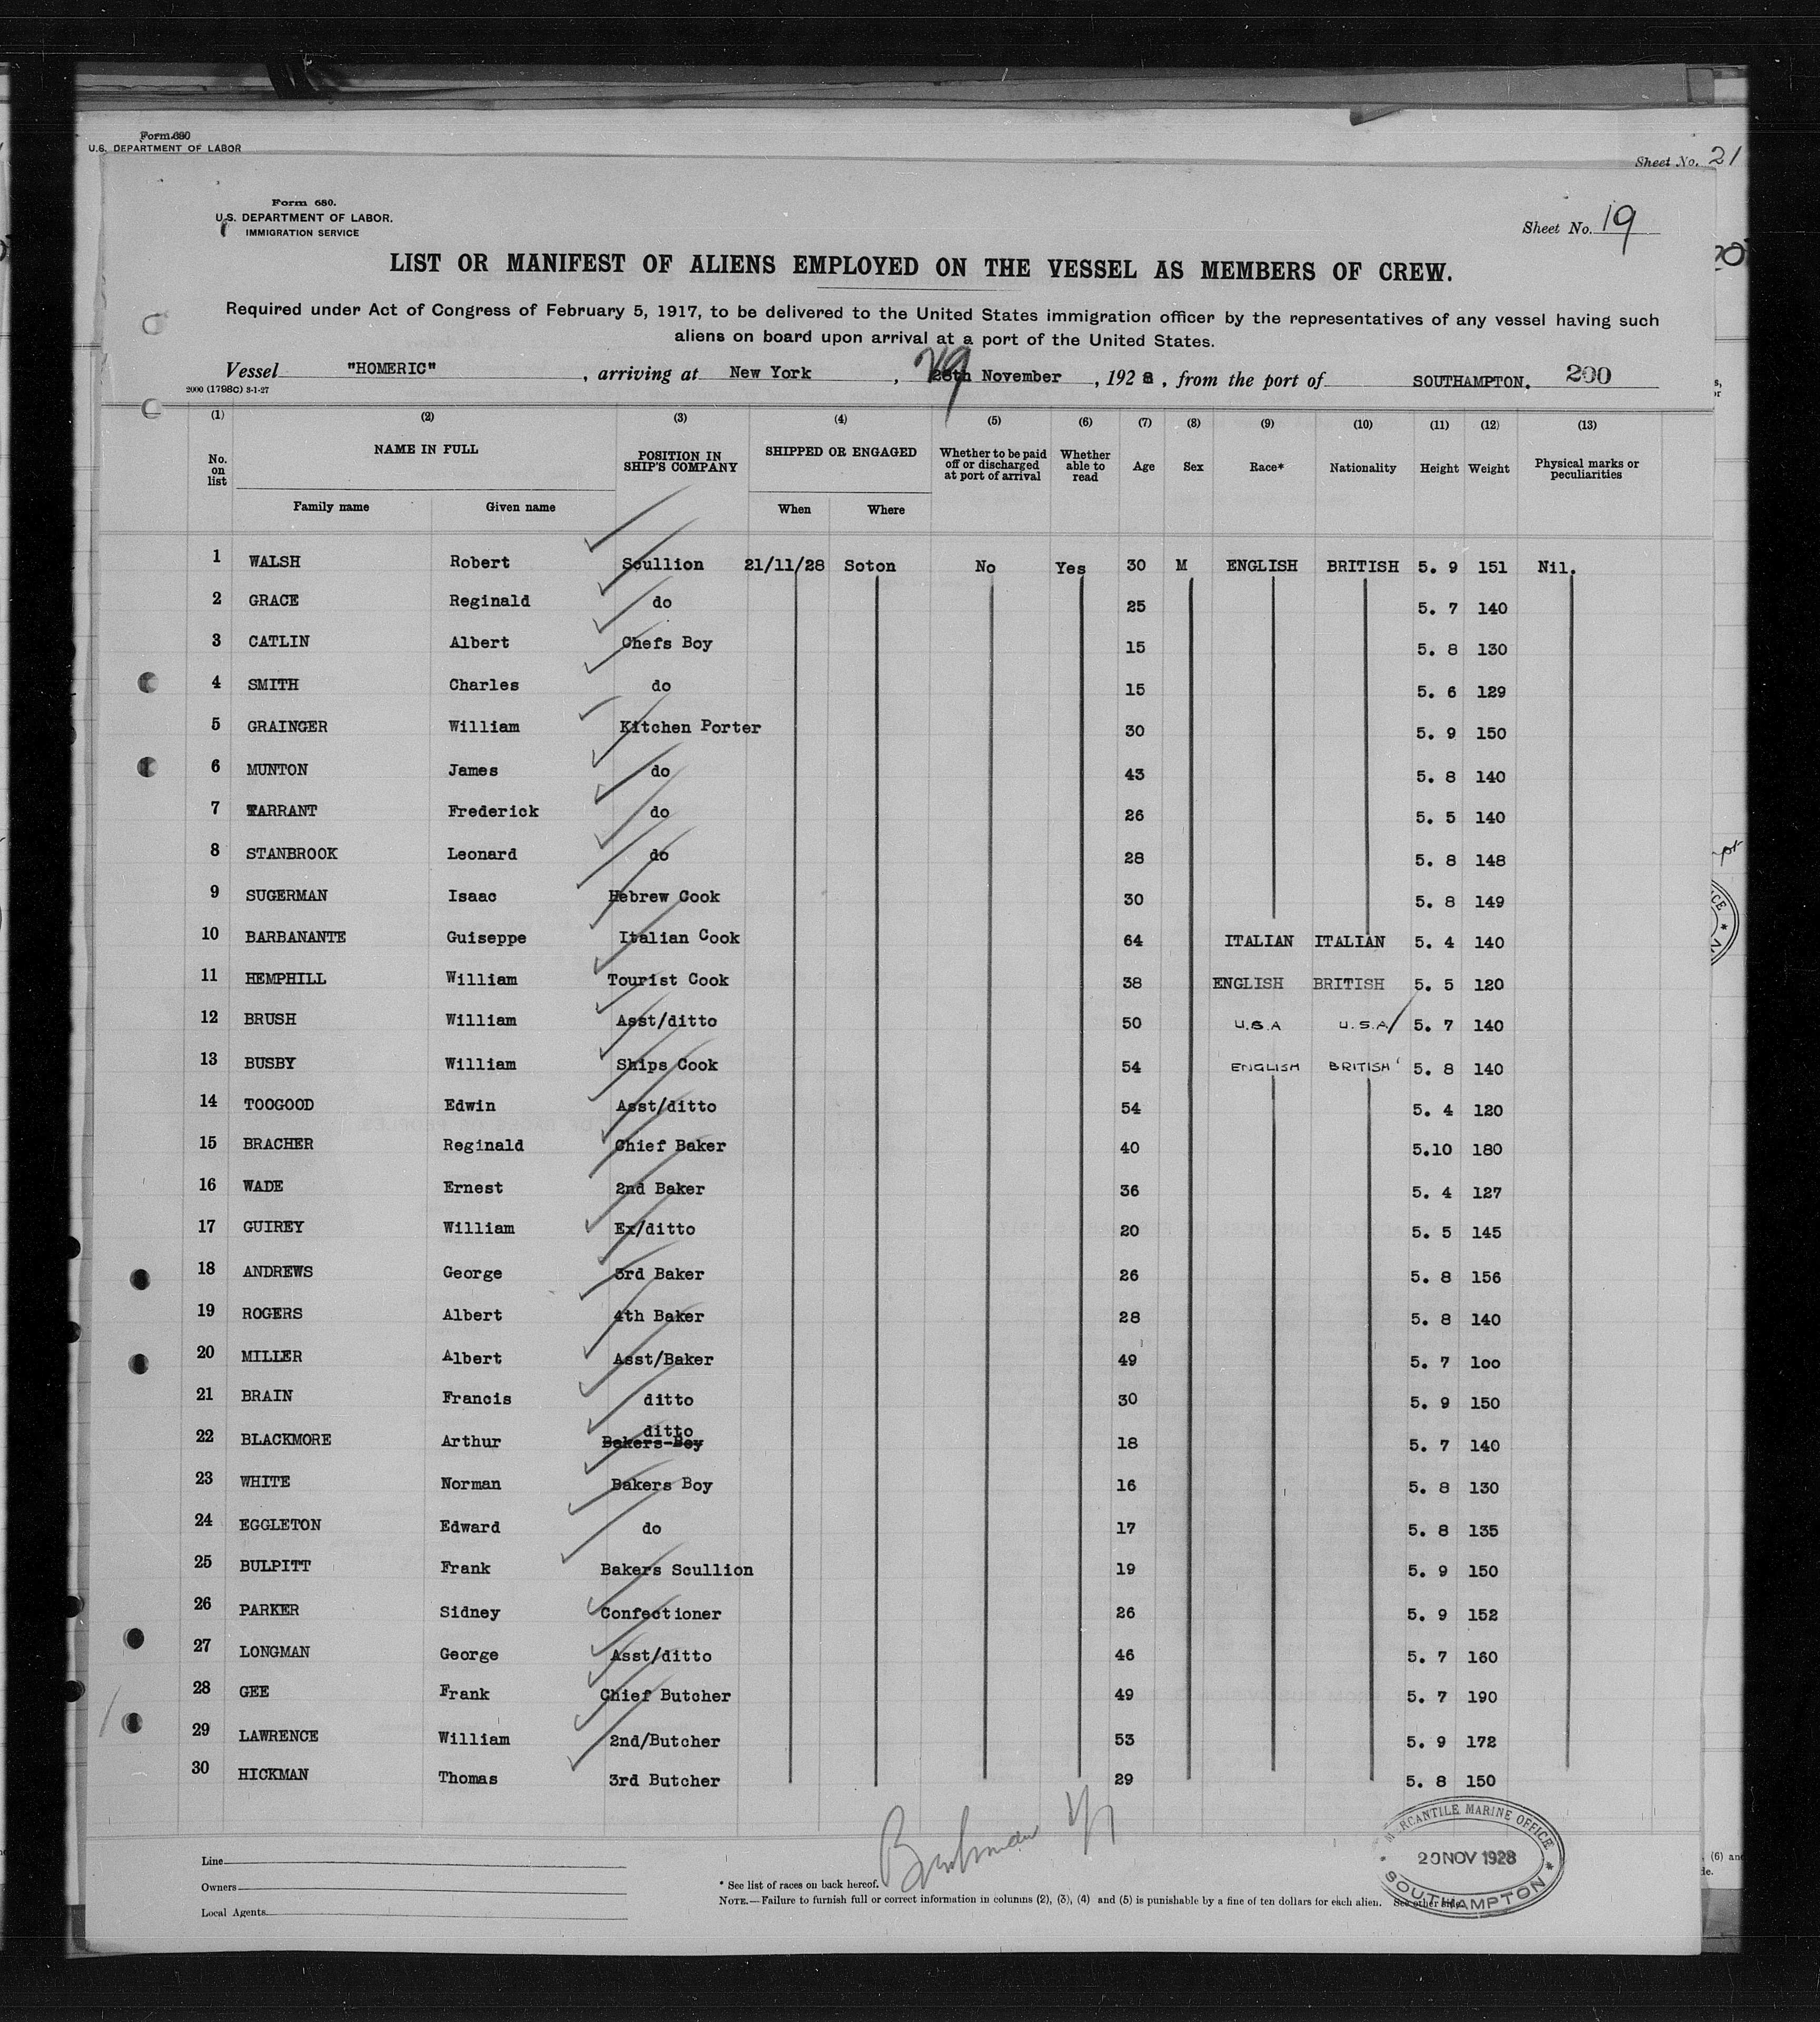 Form 680
U.S. DEPARTMENT OF LABOR
Sheet No. 21
Form 680.
U.S. DEPARTMENT OF LABOR.
IMMIGRATION SERVICE
Sheet No. 19
LIST OR MANIFEST OF ALIENS EMPLOYED ON THE VESSEL AS MEMBERS OF CREW.
Required under Act of Congress of February 5, 1917, to be delivered to the United States immigration officer by the representatives of any vessel having such
aliens on board upon arrival at a port of the United States.
Vessel "HOMERIC", arriving at New York, 29 28th November, 1928, from the port of SOUTHAMPTON. 200
2000 (1798C) 3-1-27
(1) (2) (3) (4) (5) (6) (7) (8) (9) (10) (11) (12) (13)
No. on list NAME IN FULL POSITION IN SHIP'S COMPANY SHIPPED OR ENGAGED Whether to be paid off or discharged at port of arrival Whether able to read Age Sex Race* Nationality Height Weight Physical marks or peculiarities
Family name Given name When Where
1 WALSH Robert Scullion 21/11/28 Soton No Yes 30 M ENGLISH BRITISH 5. 9 151 Nil.
2 GRACE Reginald do 25 5. 7 140
3 CATLIN Albert Chefs Boy 15 5. 8 130
4 SMITH Charles do 15 5. 6 129
5 GRAINGER William Kitchen Porter 30 5. 9 150
6 MUNTON James do 43 5. 8 140
7 TARRANT Frederick do 26 5. 5 140
8 STANBROOK Leonard do 28 5. 8 148
9 SUGERMAN Isaac Hebrew Cook 30 5. 8 149
10 BARBANANTE Guiseppe Italian Cook 64 ITALIAN ITALIAN 5. 4 140
11 HEMPHILL William Tourist Cook 38 ENGLISH BRITISH 5. 5 120
12 BRUSH William Asst/ditto 50 U.S.A U.S.A 5. 7 140
13 BUSBY William Ships Cook 54 ENGLISH BRITISH 5. 8 140
14 TOOGOOD Edwin Asst/ditto 54 5. 4 120
15 BRACHER Reginald Chief Baker 40 5.10 180
16 WADE Ernest 2nd Baker 36 5. 4 127
17 GUIREY William Ex/ditto 20 5. 5 145
18 ANDREWS George 3rd Baker 26 5. 8 156
19 ROGERS Albert 4th Baker 28 5. 8 140
20 MILLER Albert Asst/Baker 49 5. 7 100
21 BRAIN Francis ditto 30 5. 9 150
22 BLACKMORE Arthur ditto Bakers-Boy 18 5. 7 140
23 WHITE Norman Bakers Boy 16 5. 8 130
24 EGGLETON Edward do 17 5. 8 135
25 BULPITT Frank Bakers Scullion 19 5. 9 150
26 PARKER Sidney Confectioner 26 5. 9 152
27 LONGMAN George Asst/ditto 46 5. 7 160
28 GEE Frank Chief Butcher 49 5. 7 190
29 LAWRENCE William 2nd/Butcher 53 5. 9 172
30 HICKMAN Thomas 3rd Butcher 29 5. 8 150
Line
Owners
Local Agents
* See list of races on back hereof.
NOTE.—Failure to furnish full or correct information in columns (2), (3), (4) and (5) is punishable by a fine of ten dollars for each alien. See other side.
MERCANTILE MARINE OFFICE
20 NOV 1928
SOUTHAMPTON